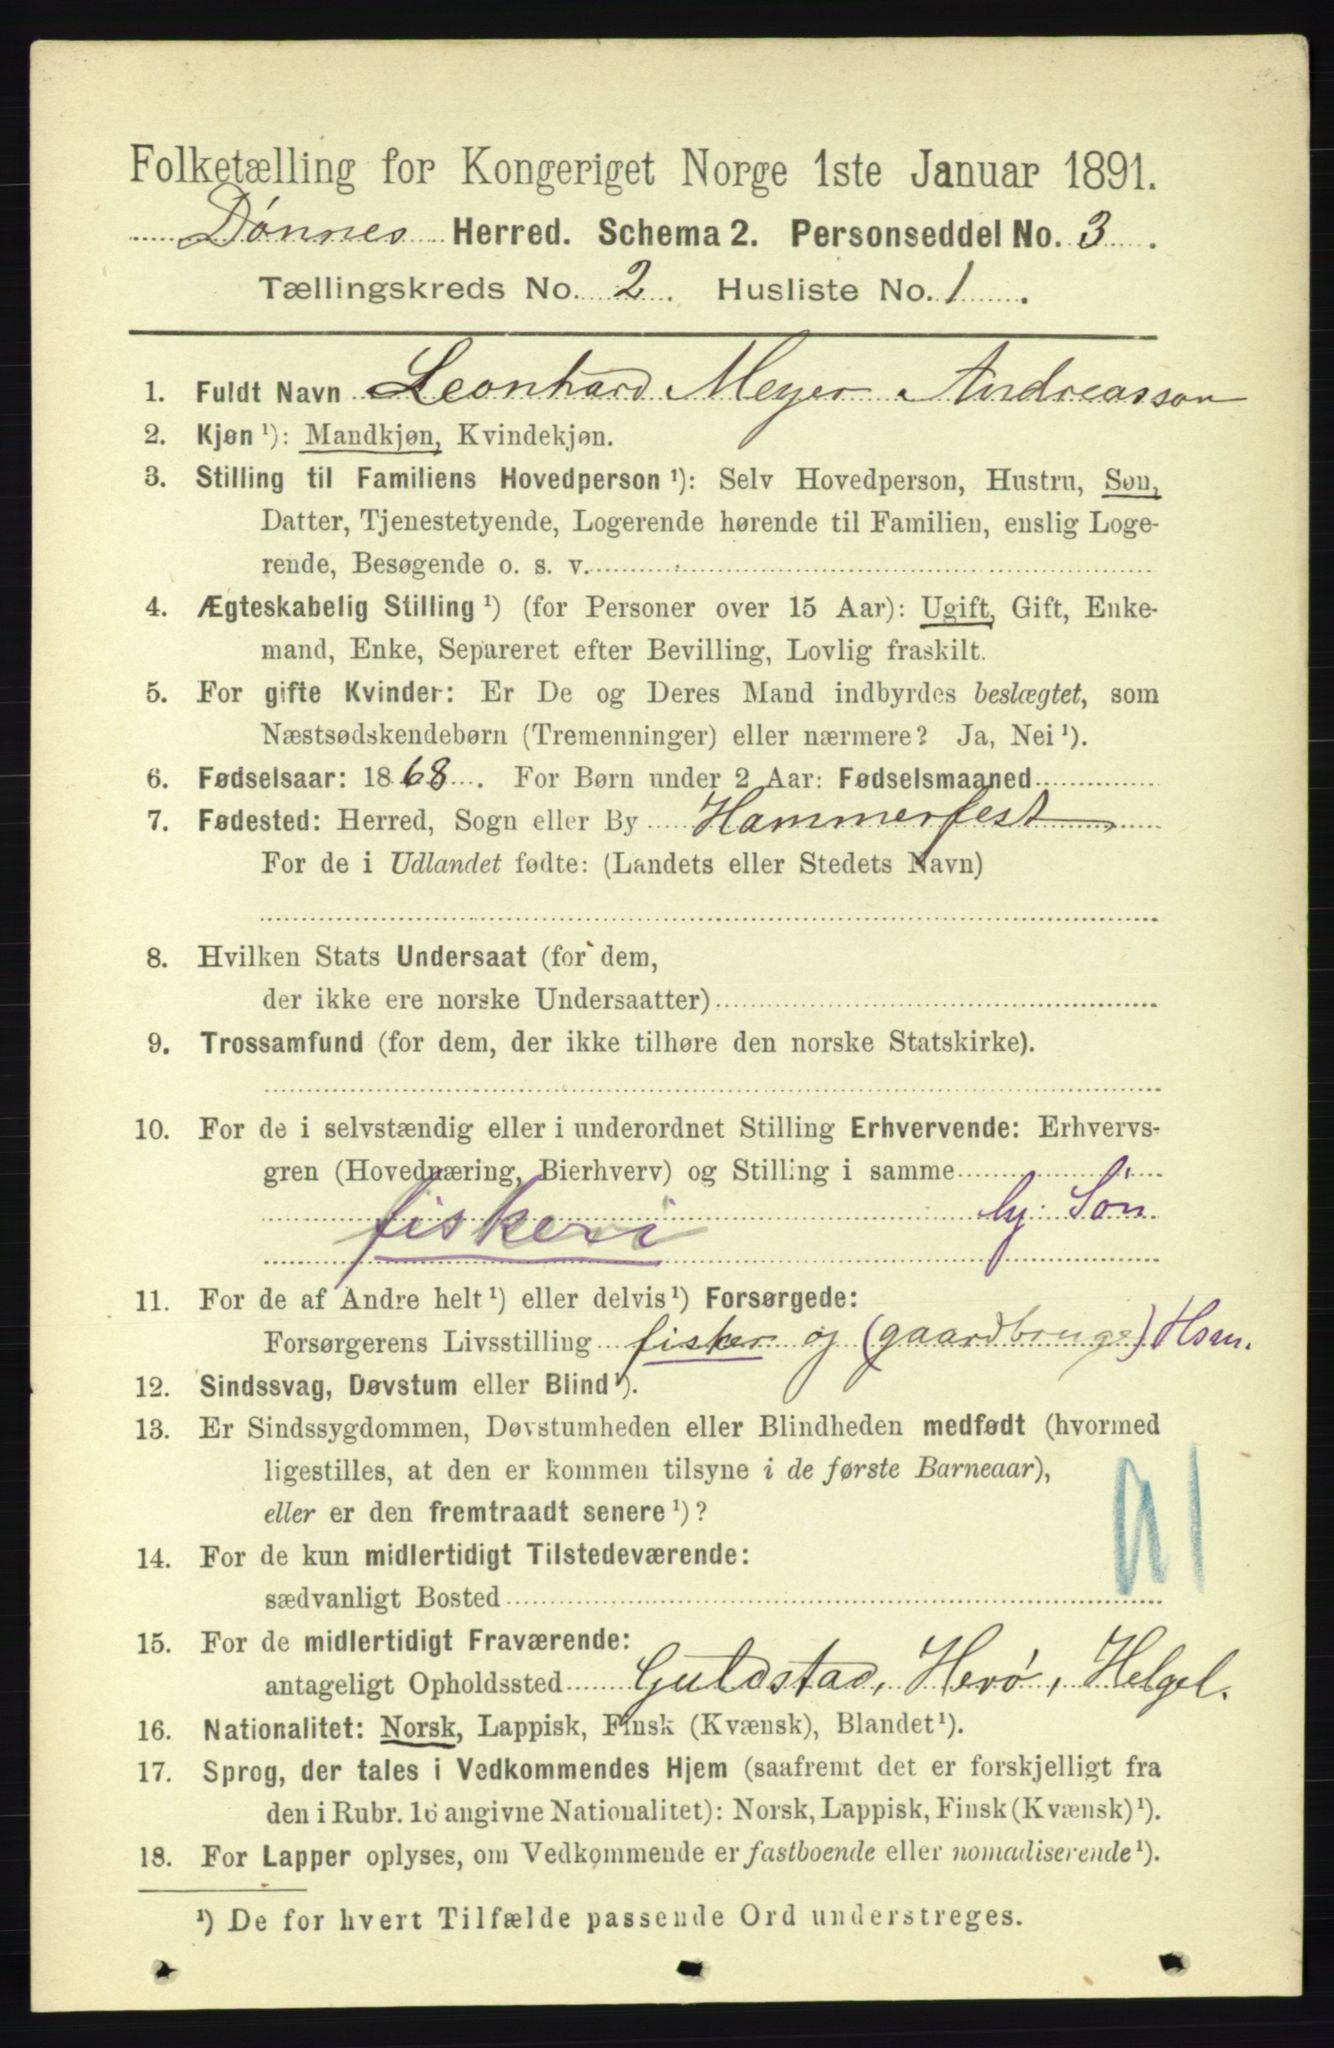 Folketælling for Kongeriget Norge 1ste Januar 1891.
Dønnes Herred. Schema 2. Personseddel No. 3.
Tællingskreds No. 2. Husliste No. 1.
1. Fuldt Navn Leonhard Meyer Andreasson
2. Kjøn ¹): Mandkjøn, Kvindekjøn.
3. Stilling til Familiens Hovedperson ¹): Selv Hovedperson, Hustru, Søn,
Datter, Tjenestetyende, Logerende hørende til Familien, enslig Loge-
rende, Besøgende o. s. v.
4. Ægteskabelig Stilling ¹) (for Personer over 15 Aar): Ugift, Gift, Enke-
mand, Enke, Separeret efter Bevilling, Lovlig fraskilt.
5. For gifte Kvinder: Er De og Deres Mand indbyrdes beslægtet, som
Næstsødskendebørn (Tremenninger) eller nærmere? Ja, Nei ¹).
6. Fødselsaar: 1868. For Børn under 2 Aar: Fødselsmaaned
7. Fødested: Herred, Sogn eller By Hammerfest
For de i Udlandet fødte: (Landets eller Stedets Navn)
8. Hvilken Stats Undersaat (for dem,
der ikke ere norske Undersaatter)
9. Trossamfund (for dem, der ikke tilhøre den norske Statskirke).
10. For de i selvstændig eller i underordnet Stilling Erhvervende: Erhvervs-
gren (Hovednæring, Bierhverv) og Stilling i samme
fiskeri hj. Søn
11. For de af Andre helt ¹) eller delvis ¹) Forsørgede:
Forsørgerens Livsstilling fisker og (gaardbruger) Hsm.
12. Sindssvag, Døvstum eller Blind ¹).
13. Er Sindssygdommen, Døvstumheden eller Blindheden medfødt (hvormed
ligestilles, at den er kommen tilsyne i de første Barneaar),
eller er den fremtraadt senere ¹)?
14. For de kun midlertidigt Tilstedeværende:
sædvanligt Bosted
15. For de midlertidigt Fraværende:
antageligt Opholdssted Guldstad, Herø, Helgel.
16. Nationalitet: Norsk, Lappisk, Finsk (Kvænsk), Blandet ¹).
17. Sprog, der tales i Vedkommendes Hjem (saafremt det er forskjelligt fra
den i Rubr. 16 angivne Nationalitet): Norsk, Lappisk, Finsk (Kvænsk) ¹).
18. For Lapper oplyses, om Vedkommende er fastboende eller nomadiserende ¹).
¹) De for hvert Tilfælde passende Ord understreges.